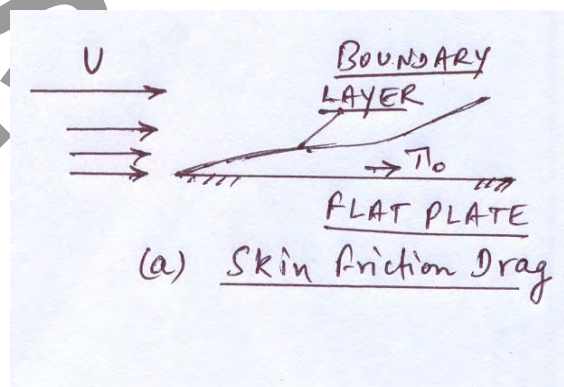 U
BOUNDARY
LAYER
π₀
FLAT PLATE
(a) Skin friction Drag